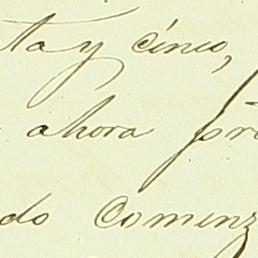 ta y cinco,
ahora
do Comenz